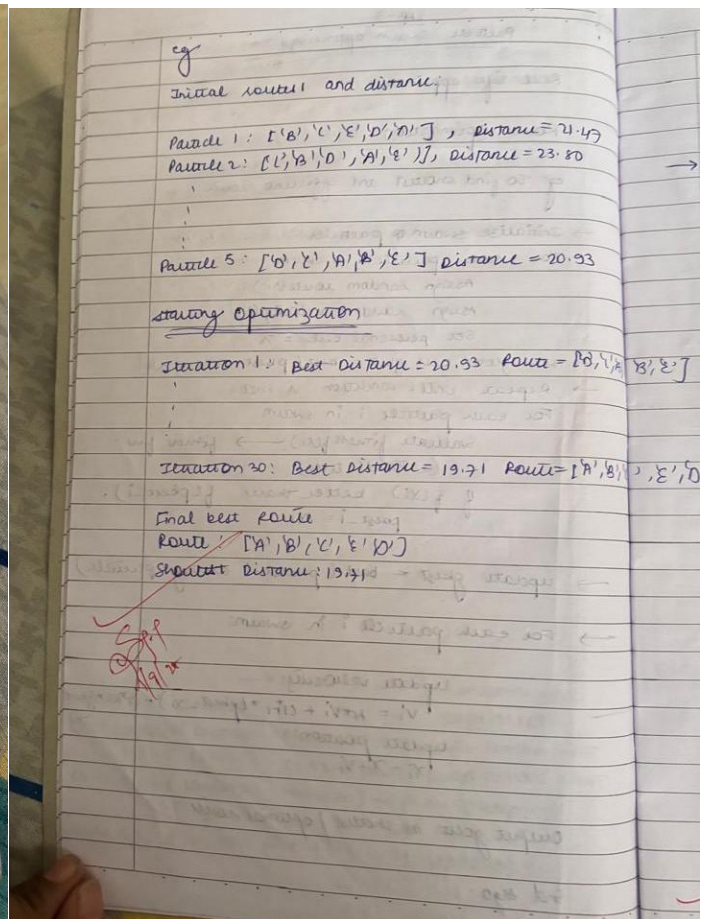 eg
Initial routes and distance.
Particle 1: ['B','C','E','D','A'], Distance = 21.47
Particle 2: [C','B','D','A','E')], Distance = 23.80
Particle 5: ['D','C','A','B','E'] Distance = 20.93
starting optimization
Iteration 1: Best Distance = 20.93 Route = ['D','C','A 'B','E']
Iteration 30: Best Distance = 19.71 Route = ['A','B', ','E','D
Final best Route
Route: ['A','B','C','E','D']
Shortest Distance: 19.71